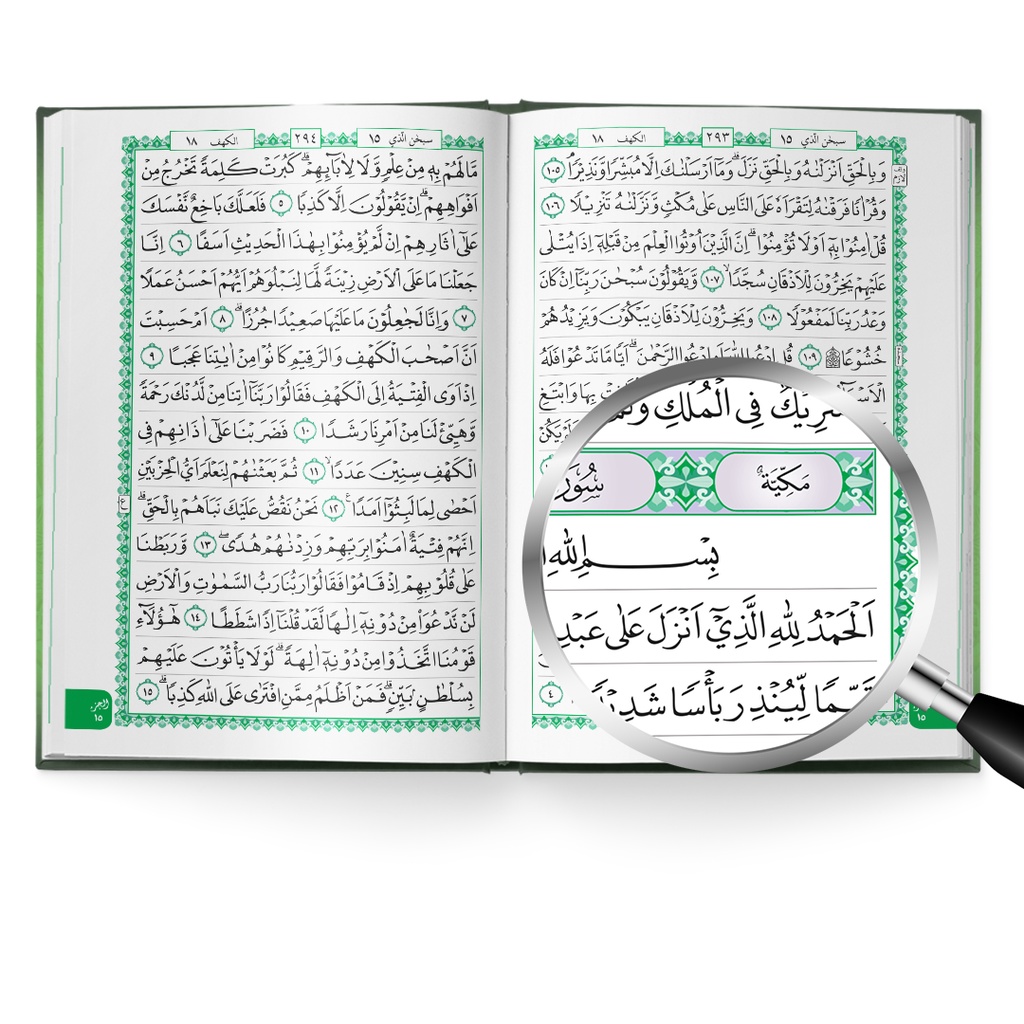 سبحٰن الّذي ١٥ ٢٩٣ الكهف ١٨
وَبِالْحَقِّ اَنْزَلْنٰهُ وَبِالْحَقِّ نَزَلَ ؕ وَمَاۤ اَرْسَلْنٰكَ اِلَّا مُبَشِّرًا وَّنَذِيْرًا ۘ ﴿١٠٥﴾
وَقُرْاٰنًا فَرَقْنٰهُ لِتَقْرَاَهٗ عَلَى النَّاسِ عَلٰى مُكْثٍ وَّنَزَّلْنٰهُ تَنْزِيْلًا ﴿١٠٦﴾
قُلْ اٰمِنُوْا بِهٖۤ اَوْ لَا تُؤْمِنُوْا ؕ اِنَّ الَّذِيْنَ اُوْتُوا الْعِلْمَ مِنْ قَبْلِهٖۤ اِذَا يُتْلٰى
عَلَيْهِمْ يَخِرُّوْنَ لِلْاَذْقَانِ سُجَّدًا ۙ ﴿١٠٧﴾ وَّيَقُوْلُوْنَ سُبْحٰنَ رَبِّنَاۤ اِنْ كَانَ
وَعْدُ رَبِّنَا لَمَفْعُوْلًا ﴿١٠٨﴾ وَيَخِرُّوْنَ لِلْاَذْقَانِ يَبْكُوْنَ وَيَزِيْدُهُمْ
خُشُوْعًا ۩ ﴿١٠٩﴾ قُلِ ادْعُوا اللّٰهَ اَوِ ادْعُوا الرَّحْمٰنَ ؕ اَيًّا مَّا تَدْعُوْا فَلَهُ
بِهَا وَابْتَغِ
شَرِيْكٌ فِى الْمُلْكِ
مَكِّيَّةٌ
بِسْمِ اللّٰهِ
اَلْحَمْدُ لِلّٰهِ الَّذِيْۤ اَنْزَلَ عَلٰى عَبْدِهِ
قَيِّمًا لِّيُنْذِرَ بَأْسًا شَدِيْدًا
﴿٤﴾
١٥
سبحٰن الّذي ١٥ ٢٩٤ الكهف ١٨
مَا لَهُمْ بِهٖ مِنْ عِلْمٍ وَّلَا لِاٰبَآئِهِمْ ؕ كَبُرَتْ كَلِمَةً تَخْرُجُ مِنْ
اَفْوَاهِهِمْ ؕ اِنْ يَّقُوْلُوْنَ اِلَّا كَذِبًا ﴿٥﴾ فَلَعَلَّكَ بَاخِعٌ نَّفْسَكَ
عَلٰۤى اٰثَارِهِمْ اِنْ لَّمْ يُؤْمِنُوْا بِهٰذَا الْحَدِيْثِ اَسَفًا ﴿٦﴾ اِنَّا
جَعَلْنَا مَا عَلَى الْاَرْضِ زِيْنَةً لَّهَا لِنَبْلُوَهُمْ اَيُّهُمْ اَحْسَنُ عَمَلًا
﴿٧﴾ وَاِنَّا لَجٰعِلُوْنَ مَا عَلَيْهَا صَعِيْدًا جُرُزًا ؕ ﴿٨﴾ اَمْ حَسِبْتَ
اَنَّ اَصْحٰبَ الْكَهْفِ وَالرَّقِيْمِ كَانُوْا مِنْ اٰيٰتِنَا عَجَبًا ﴿٩﴾
اِذْ اَوَى الْفِتْيَةُ اِلَى الْكَهْفِ فَقَالُوْا رَبَّنَاۤ اٰتِنَا مِنْ لَّدُنْكَ رَحْمَةً
وَّهَيِّئْ لَنَا مِنْ اَمْرِنَا رَشَدًا ﴿١٠﴾ فَضَرَبْنَا عَلٰۤى اٰذَانِهِمْ فِى
الْكَهْفِ سِنِيْنَ عَدَدًا ۙ ﴿١١﴾ ثُمَّ بَعَثْنٰهُمْ لِنَعْلَمَ اَيُّ الْحِزْبَيْنِ
اَحْصٰى لِمَا لَبِثُوْۤا اَمَدًا ﴿١٢﴾ نَحْنُ نَقُصُّ عَلَيْكَ نَبَاَهُمْ بِالْحَقِّ ؕ
اِنَّهُمْ فِتْيَةٌ اٰمَنُوْا بِرَبِّهِمْ وَزِدْنٰهُمْ هُدًى ۖ ﴿١٣﴾ وَّرَبَطْنَا
عَلٰى قُلُوْبِهِمْ اِذْ قَامُوْا فَقَالُوْا رَبُّنَا رَبُّ السَّمٰوٰتِ وَالْاَرْضِ
لَنْ نَّدْعُوَا۟ مِنْ دُوْنِهٖۤ اِلٰهًا لَّقَدْ قُلْنَاۤ اِذًا شَطَطًا ﴿١٤﴾ هٰٓؤُلَآءِ
قَوْمُنَا اتَّخَذُوْا مِنْ دُوْنِهٖۤ اٰلِهَةً ؕ لَوْلَا يَأْتُوْنَ عَلَيْهِمْ
بِسُلْطٰنٍ بَيِّنٍ ؕ فَمَنْ اَظْلَمُ مِمَّنِ افْتَرٰى عَلَى اللّٰهِ كَذِبًا ؕ ﴿١٥﴾
الجزء
١٥